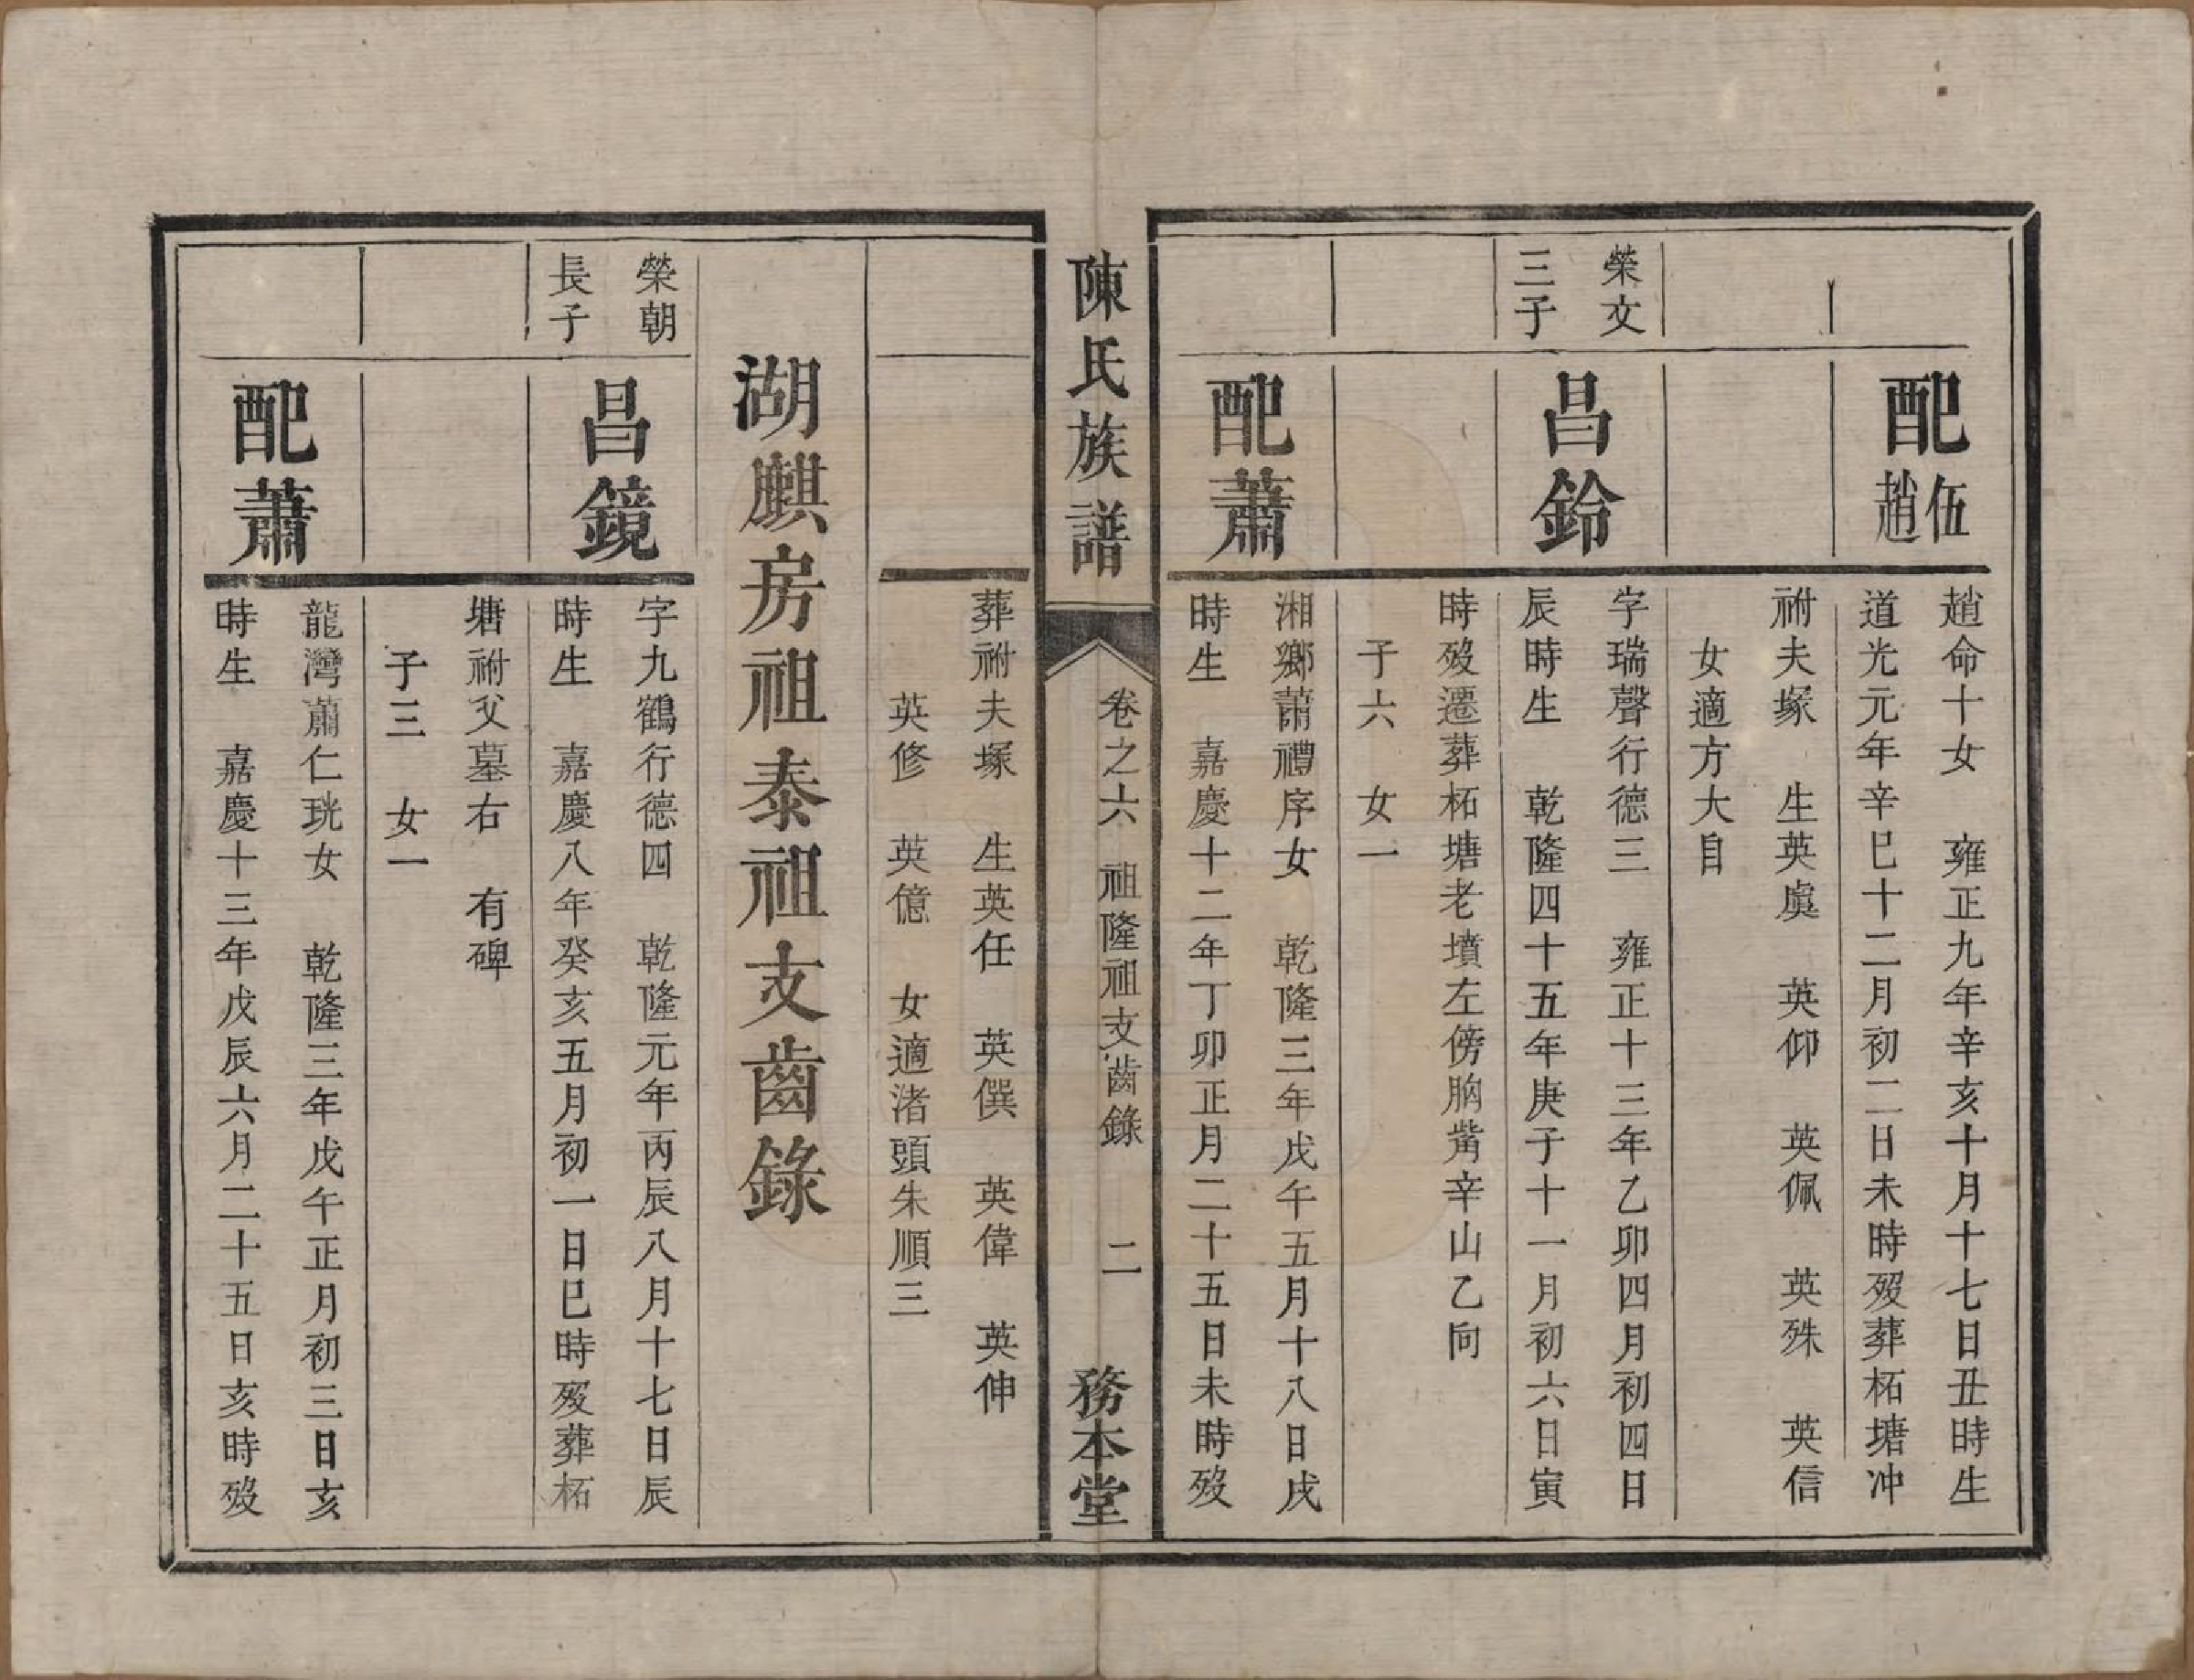 配伍趙
趙命十女　雍正九年辛亥十月十七日丑時生
道光元年辛巳十二月初二日未時歿葬柘塘冲
祔夫塚　生英虞　英仰　英佩　英殊　英信
女適方大目
榮文
三子
昌鈴
字瑞聲行德三　雍正十三年乙卯四月初四日
辰時生　乾隆四十五年庚子十一月初六日寅
時歿遷葬柘塘老墳左傍胸觜辛山乙向
子六　女一
配蕭
湘鄉蕭禮序女　乾隆三年戊午五月十八日戌
時生　嘉慶十二年丁卯正月二十五日未時歿
陳氏族譜　卷之六　祖隆祖支齒錄　二　務本堂
葬祔夫塚　生英任　英僎　英偉　英伸
英修　英億　女適渚頭朱順三
湖麒房祖泰祖支齒錄
榮朝
長子
昌鏡
字九鶴行德四　乾隆元年丙辰八月十七日辰
時生　嘉慶八年癸亥五月初一日巳時歿葬柘
塘祔父墓右　有碑
子三　女一
配蕭
龍灣蕭仁珖女　乾隆三年戊午正月初三日亥
時生　嘉慶十三年戊辰六月二十五日亥時歿